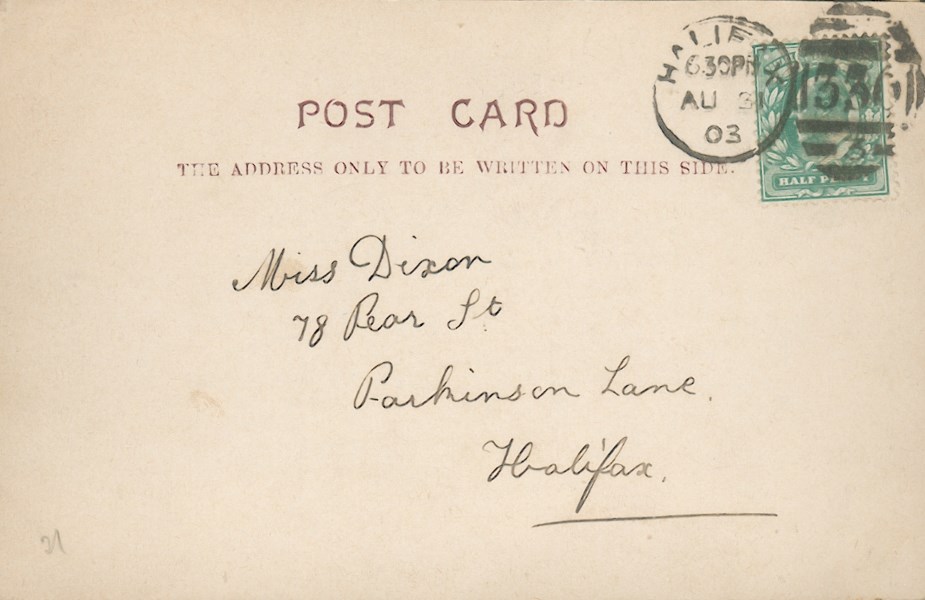 HALIFAX
6 30 PM
AU 31
03
HALF PENNY
POST CARD
THE ADDRESS ONLY TO BE WRITTEN ON THIS SIDE.
Miss Dixon
78 Pear St
Parkinson Lane.
Halifax.